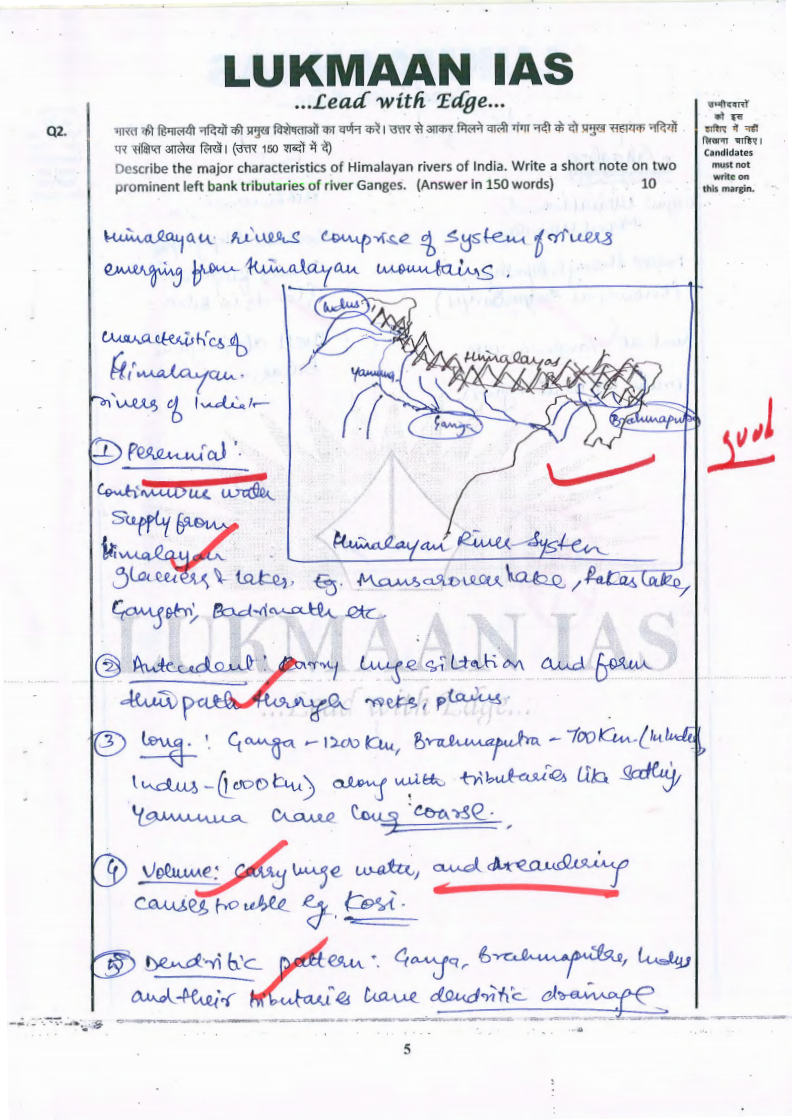 LUKMAAN IAS
...Lead with Edge...
उम्मीदवारों
को इस
हाशिए में नहीं
लिखना चाहिए।
Candidates
must not
write on
this margin.
Q2.
भारत की हिमालयी नदियों की प्रमुख विशेषताओं का वर्णन करें। उत्तर से आकर मिलने वाली गंगा नदी के दो प्रमुख सहायक नदियों
पर संक्षिप्त आलेख लिखें। (उत्तर 150 शब्दों में दें)
Describe the major characteristics of Himalayan rivers of India. Write a short note on two
prominent left bank tributaries of river Ganges. (Answer in 150 words) 10
Himalayan rivers comprise of system of rivers
emerging from Himalayan mountains.
Indus
Himalayas
Yamuna
Ganga
Brahmaputra
Himalayan River System
good
characteristics of
Himalayan
rivers of India:-
① Perennial:
Continuous water
supply from
Himalayan
glaciers & lakes. Eg. Mansarovar lake, Rakas lake,
Gangotri, Badrinath etc
② Antecedent: Carry huge siltation and form
their path through rocks, plains
③ long: Ganga - 1200 Km, Brahmaputra - 700 Km
Indus - (1000 Km) along with tributaries like
Yamunna have long coarse.
④ Volume: Carry huge water, and Meandering
causes trouble eg. Kosi.
⑤ Dendritic pattern: Ganga, Brahmaputra, Indus
and their tributaries have dendritic drainage
LUKMAAN IAS
...Lead with Edge...
5